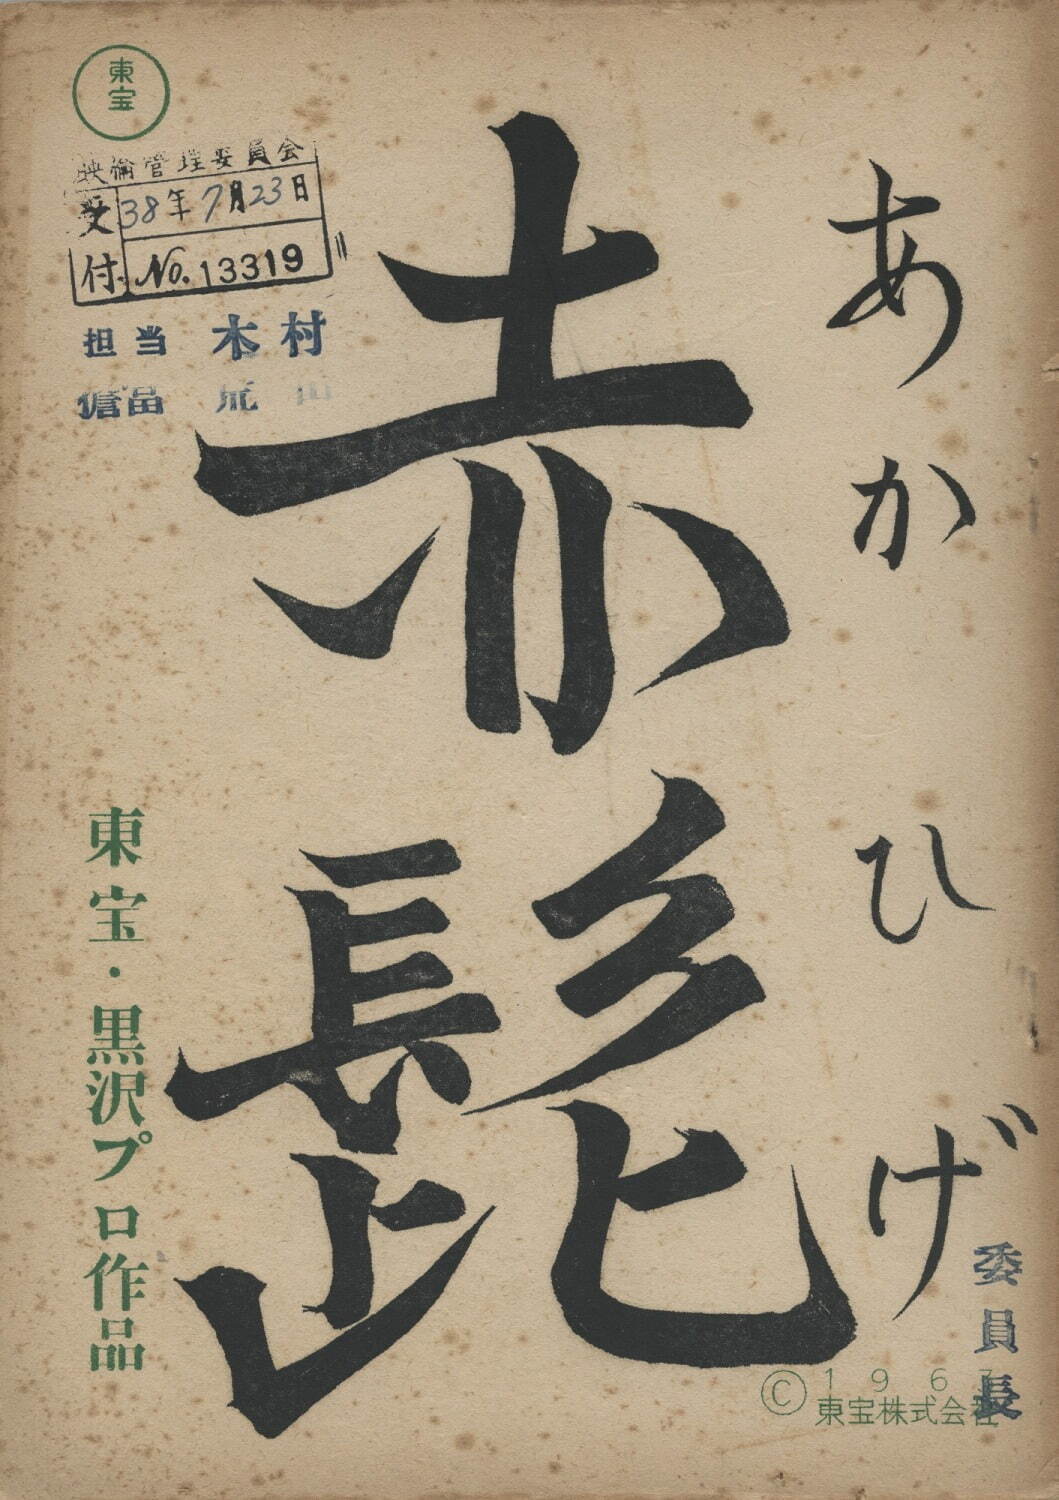 東宝
映倫管理委員会
受付
38年7月23日
No. 13319
担当 木村
荒
あかひげ
赤髭
東宝・黒沢プロ作品
委員長
© 1963
東宝株式会社